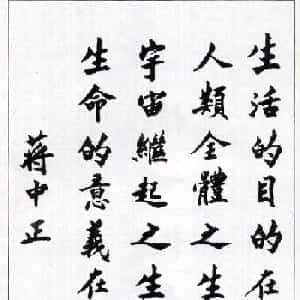 生活的目的在
人類全體之生
生命的意義在
宇宙繼起之生
蔣中正